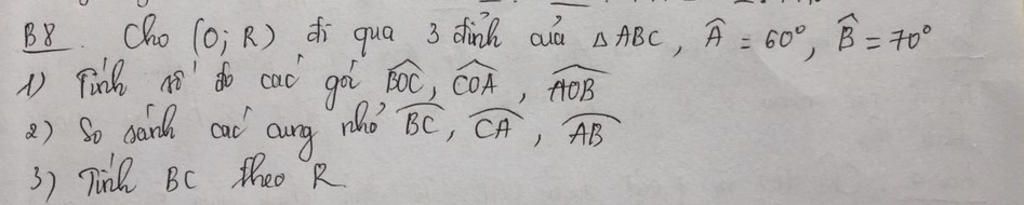 B8. Cho (O; R) đi qua 3 đỉnh của △ABC, Â = 60°, B̂ = 70°
1) Tính số đo các góc BOC, COA, AOB
2) So sánh các cung nhỏ BC, CA, AB
3) Tính BC theo R